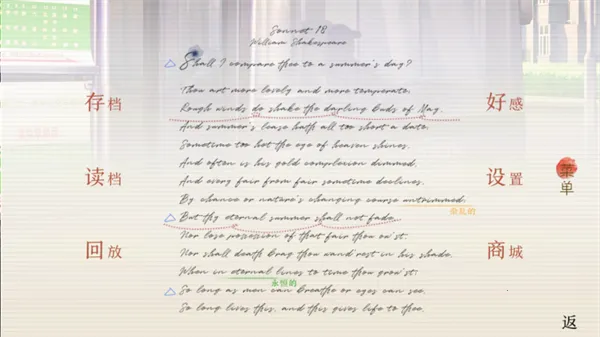 Sonnet 18
William Shakespeare
Shall I compare thee to a summer's day?
Thou art more lovely and more temperate.
Rough winds do shake the darling buds of May.
And summer's lease hath all too short a date.
Sometime too hot the eye of heaven shines.
And often is his gold complexion dimmed.
And every fair from fair sometime declines.
By chance or nature's changing course untrimmed.
杂乱的
But thy eternal summer shall not fade.
Nor lose possession of that fair thou ow'st.
Nor shall death brag thou wand'rest in his shade.
When in eternal lines to time thou grow'st.
永恒的
So long as men can breathe or eyes can see.
So long lives this, and this gives life to thee.
存档
读档
回放
好感
设置
商城
菜单
返